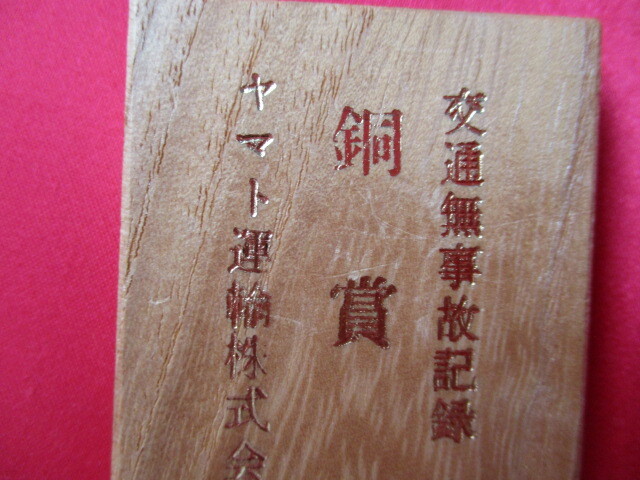 交通無事故記録
銅賞
ヤマト運輸株式会